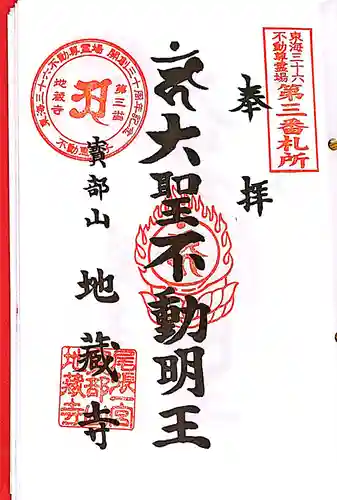 東海三十六
不動尊霊場
第三番札所
奉拝
大聖不動明王
寳部山
地蔵寺
東海三十六不動尊霊場 開創三十周年記念
第三番
地蔵寺
尾張一宮
地蔵寺